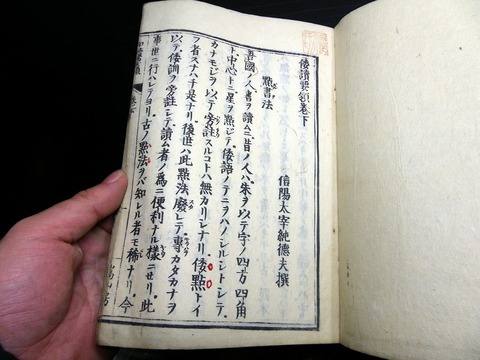 倭讀要領卷下
信陽太宰純德夫撰
點書法
吾國ノ人書ヲ讀ムニ昔ノ人ハ朱ヲ以テ字ノ四方四角
ト中心トニ星ヲ點ジテ倭語ノテニヲハノシルシトシテ
カナモジヲ以テ旁註スルコトハ無カリシナリ倭點トイ
フ者スナハチ是ナリ後世ハ此點法廢レテ專カタカナヲ
以テ倭訓ヲ旁註シテ讀ム者ノ爲ニ便利ナル樣ニセリ此
事世ニ行ハレテヨリ古ノ點法ヲバ知レル者モ稀ナリ今